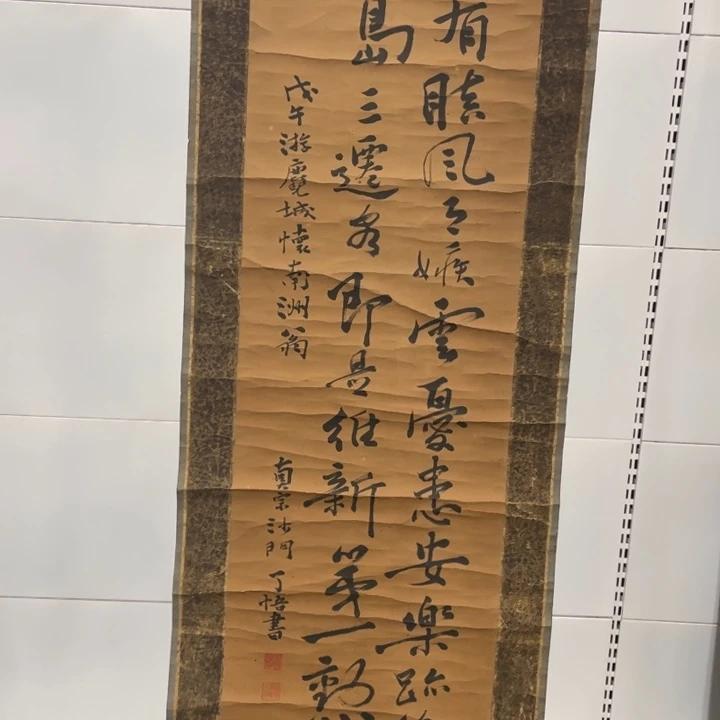 有晴風有嫉雲憂患安樂跡
島三遷客即是維新第一勳
戊午游麑城懷南洲翁
真宗沙門了悟書